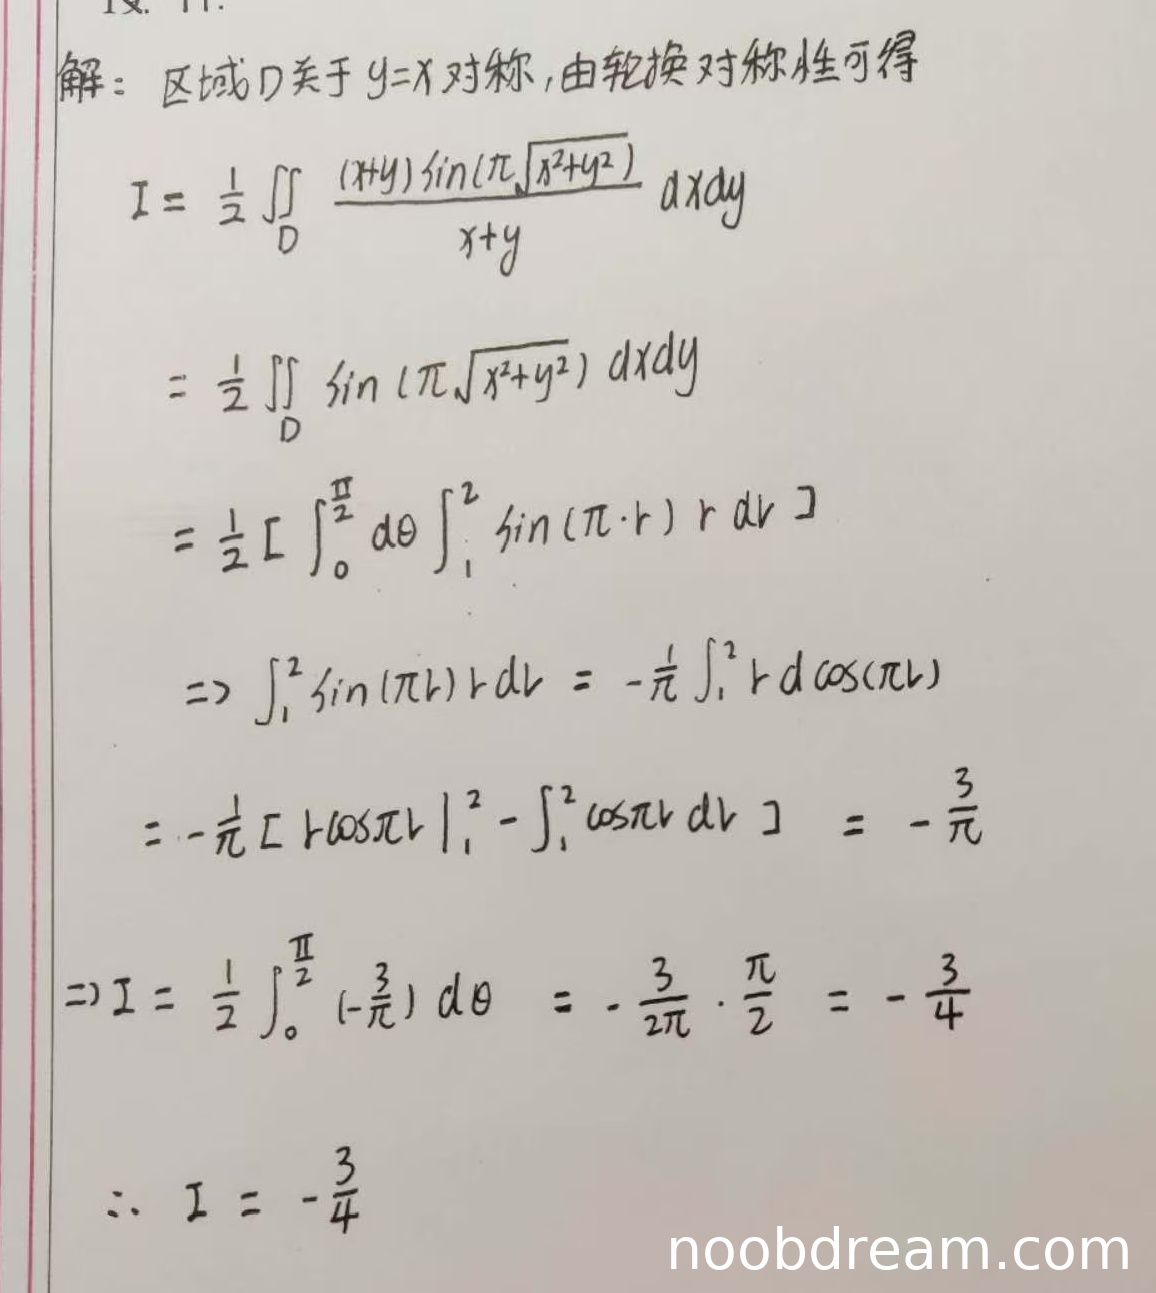 解: 区域D关于 y=x 对称,由轮换对称性可得
I = 1/2 ∬_D (x+y)sin(π√(x²+y²)) / (x+y) dxdy
= 1/2 ∬_D sin(π√(x²+y²)) dxdy
= 1/2 [ ∫_0^{π/2} dθ ∫_1^2 sin(π·r) r dr ]
=> ∫_1^2 sin(πr) r dr = -1/π ∫_1^2 r d cos(πr)
= -1/π [ r cosπr |_1^2 - ∫_1^2 cosπr dr ] = -3/π
=> I = 1/2 ∫_0^{π/2} (-3/π) dθ = -3/2π · π/2 = -3/4
∴ I = -3/4
noobdream.com